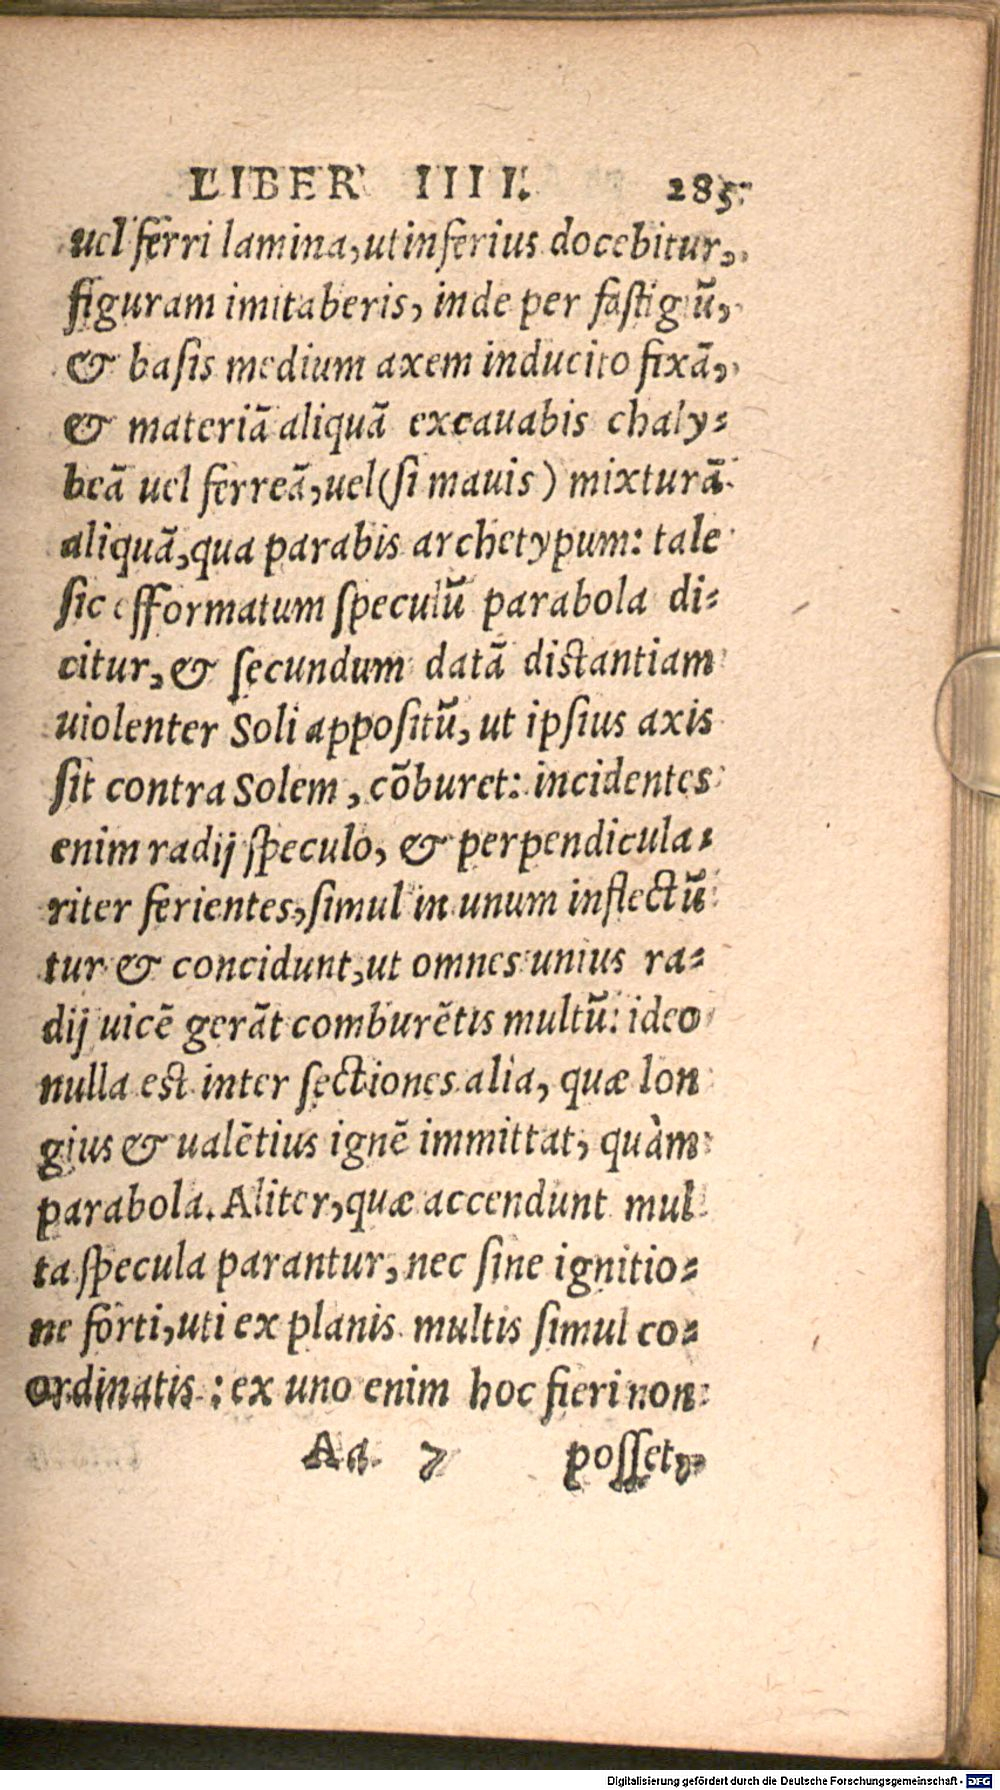 LIBER IIII. 285
uel ferri lamina, ut inferius docebitur,
figuram imitaberis, inde per fastigiū,
& basis medium axem inducito fixā,
& materiā aliquā excauabis chaly-
beā uel ferreā, uel (si mauis) mixturā
aliquā, qua parabis archetypum: tale
sic efformatum speculū parabola di-
citur, & secundum datā distantiam
uiolenter Soli appositū, ut ipsius axis
sit contra Solem, cōburet: incidentes
enim radij speculo, & perpendicula-
riter ferientes, simul in unum inflectū
tur & concidunt, ut omnes unius ra-
dij uicē gerāt comburētis multū: ideo
nulla est inter sectiones alia, quæ lon
gius & ualētius ignē immittat, quàm
parabola. Aliter, quæ accendunt mul
ta specula parantur, nec sine ignitio-
ne forti, uti ex planis multis simul co-
ordinatis: ex uno enim hoc fieri non
Aa 7 posset,
Digitalisierung gefördert durch die Deutsche Forschungsgemeinschaft - DFG